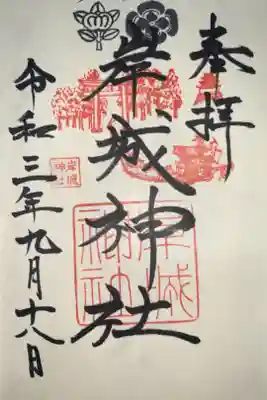 奉拝
岸城神社
令和三年九月十八日
岸城
神社
岸城
神社